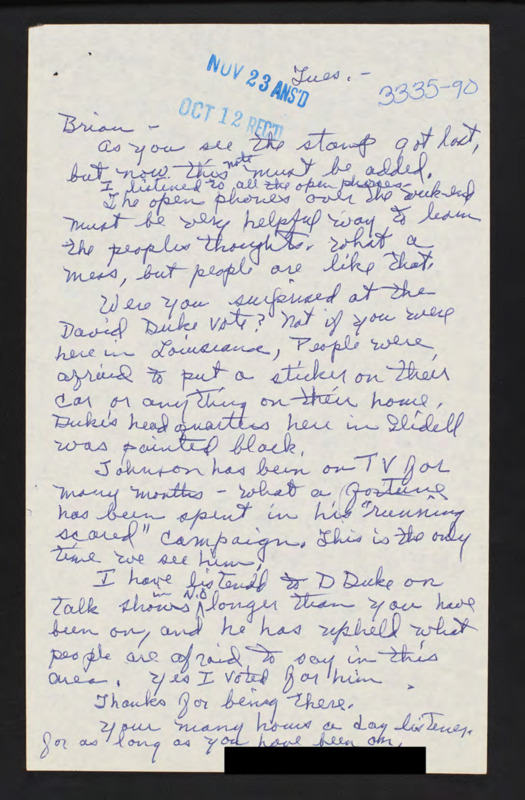 NOV 23 ANS'D
Tues. -
3335-90
OCT 12 REC'D
Brian -
As you see the stamp got lost,
but now this note must be added.
I listened to all the open phones.
The open phones over the weekend
must be very helpful way to learn
the peoples thoughts. What a
mess, but people are like that.
Were you surprised at the
David Duke vote? Not if you were
here in Louisiana, People were
afraid to put a sticker on their
car or anything on their home.
Duke's headquarters here in Slidell
was painted black.
Johnson has been on TV for
many months - what a fortune
has been spent in his "running
scared" campaign. This is the only
time we see him.
I have listened to D Duke on
talk shows in N.O. longer than you have
been on, and he has upheld what
people are afraid to say in this
area. Yes I voted for him.
Thanks for being there.
Your many hours a day listener
for as long as you have been on.